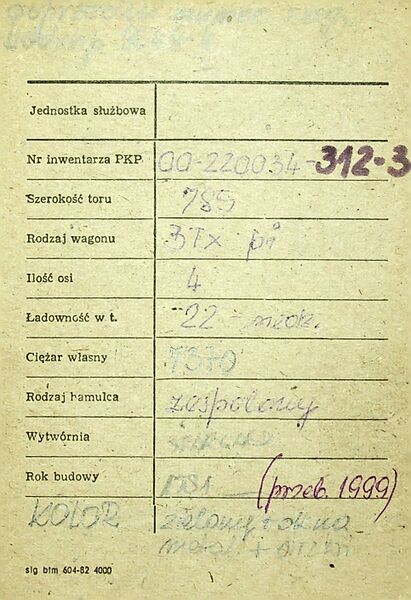 poprzedni numer
Jednostka służbowa
Nr inwentarza PKP 00-220034-312-3
Szerokość toru 785
Rodzaj wagonu 3Tx pi
Ilość osi 4
Ładowność w t. 22 - miejsc.
Ciężar własny 7370
Rodzaj hamulca zespolony
Wytwórnia
Rok budowy 1981 (przeb. 1999)
KOLOR zielony + okna
metal. +
sig btm 604-82 4000